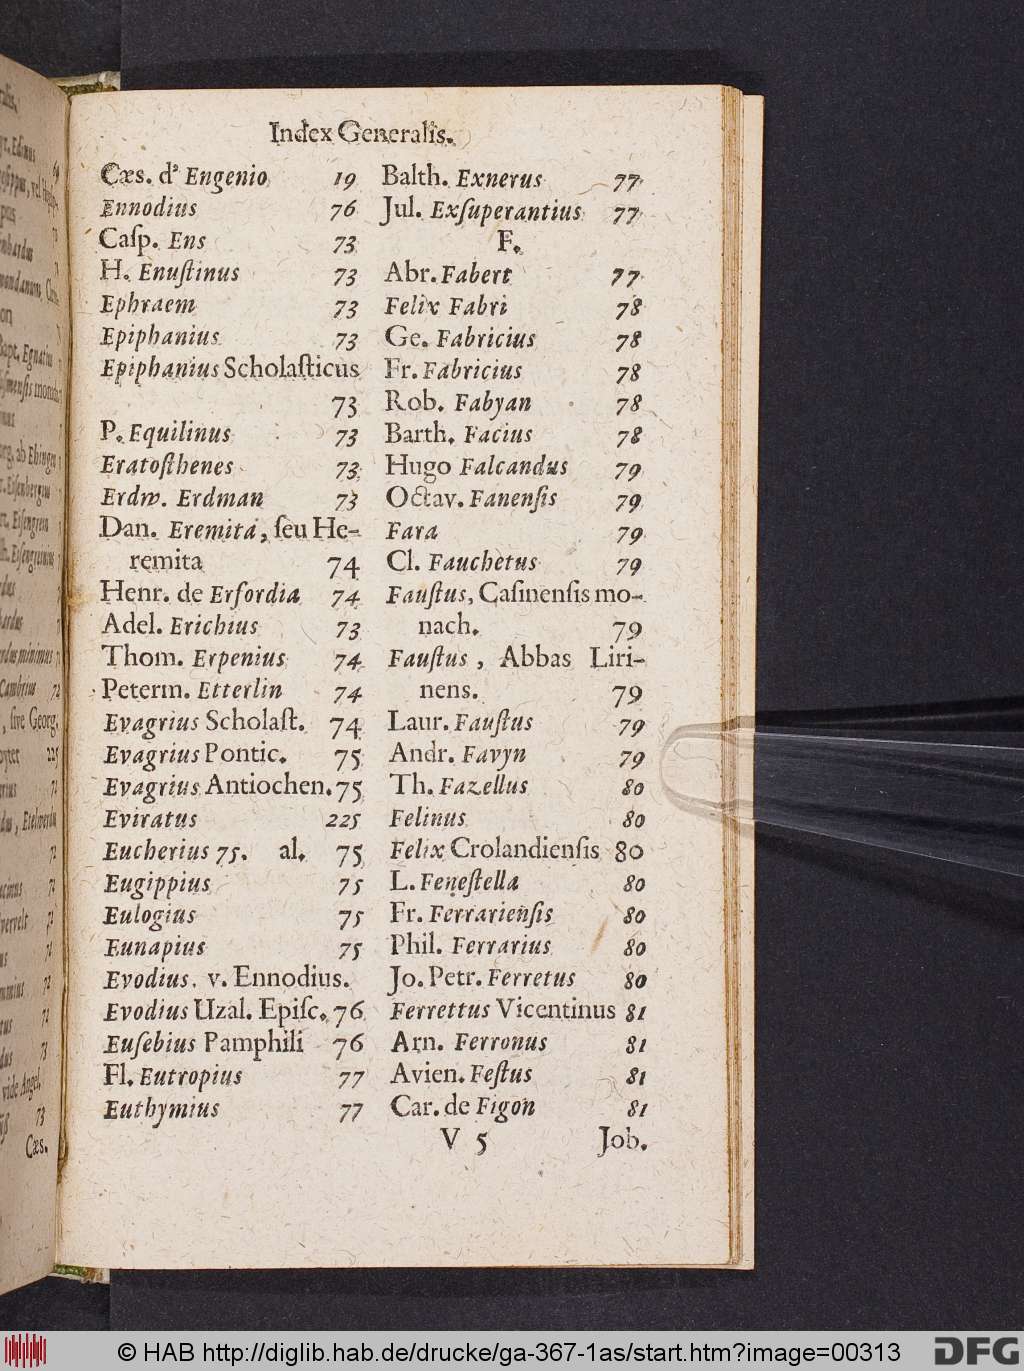 Index Generalis.
Cæs. d' Engenio 19
Ennodius 76
Caſp. Ens 73
H. Enuſtinus 73
Ephraem 73
Epiphanius 73
Epiphanius Scholaſticus
73
P. Equilinus 73
Eratoſthenes 73
Erdw. Erdman 73
Dan. Eremita, ſeu He-
remita 74
Henr. de Erfordia 74
Adel. Erichius 73
Thom. Erpenius 74
Peterm. Etterlin 74
Evagrius Scholaſt. 74
Evagrius Pontic. 75
Evagrius Antiochen. 75
Eviratus 225
Eucherius 75. al. 75
Eugippius 75
Eulogius 75
Eunapius 75
Evodius. v. Ennodius.
Evodius Uzal. Epiſc. 76
Euſebius Pamphili 76
Fl. Eutropius 77
Euthymius 77
Balth. Exnerus 77
Jul. Exſuperantius 77
F.
Abr. Fabert 77
Felix Fabri 78
Ge. Fabricius 78
Fr. Fabricius 78
Rob. Fabyan 78
Barth. Facius 78
Hugo Falcandus 79
Octav. Fanenſis 79
Fara 79
Cl. Fauchetus 79
Fauſtus, Caſinenſis mo-
nach. 79
Fauſtus, Abbas Liri-
nens. 79
Laur. Fauſtus 79
Andr. Favyn 79
Th. Fazellus 80
Felinus 80
Felix Crolandienſis 80
L. Feneſtella 80
Fr. Ferrarienſis 80
Phil. Ferrarius 80
Jo. Petr. Ferretus 80
Ferrettus Vicentinus 81
Arn. Ferronus 81
Avien. Feſtus 81
Car. de Figon 81
V 5 Job.
Cæs.
© HAB http://diglib.hab.de/drucke/ga-367-1as/start.htm?image=00313
DFG